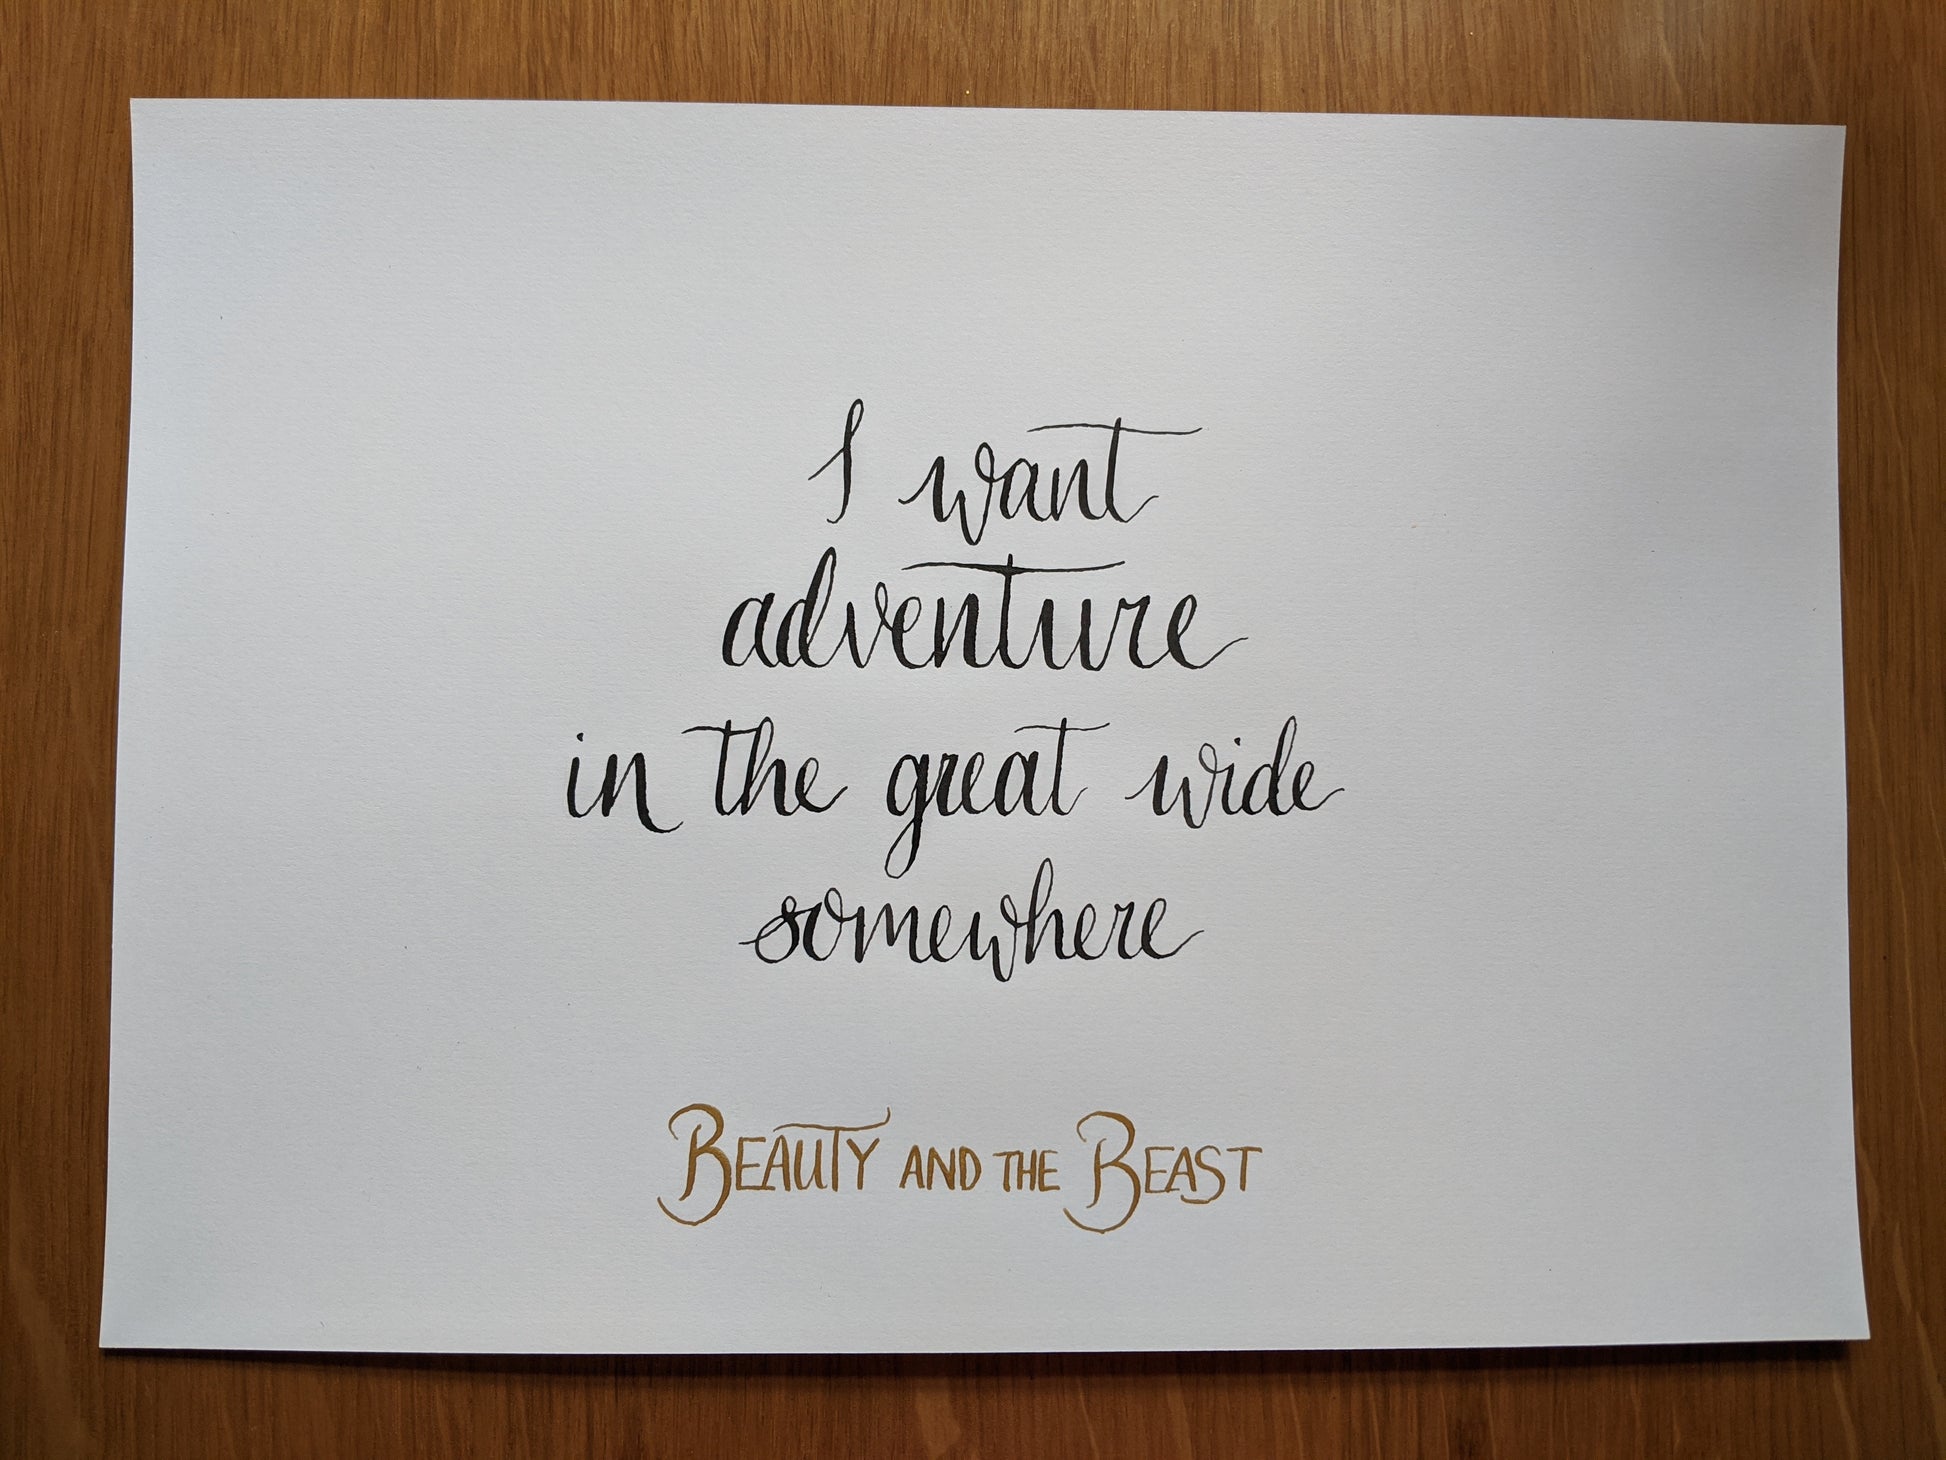 I want
adventure
in the great wide
somewhere
BEAUTY AND THE BEAST